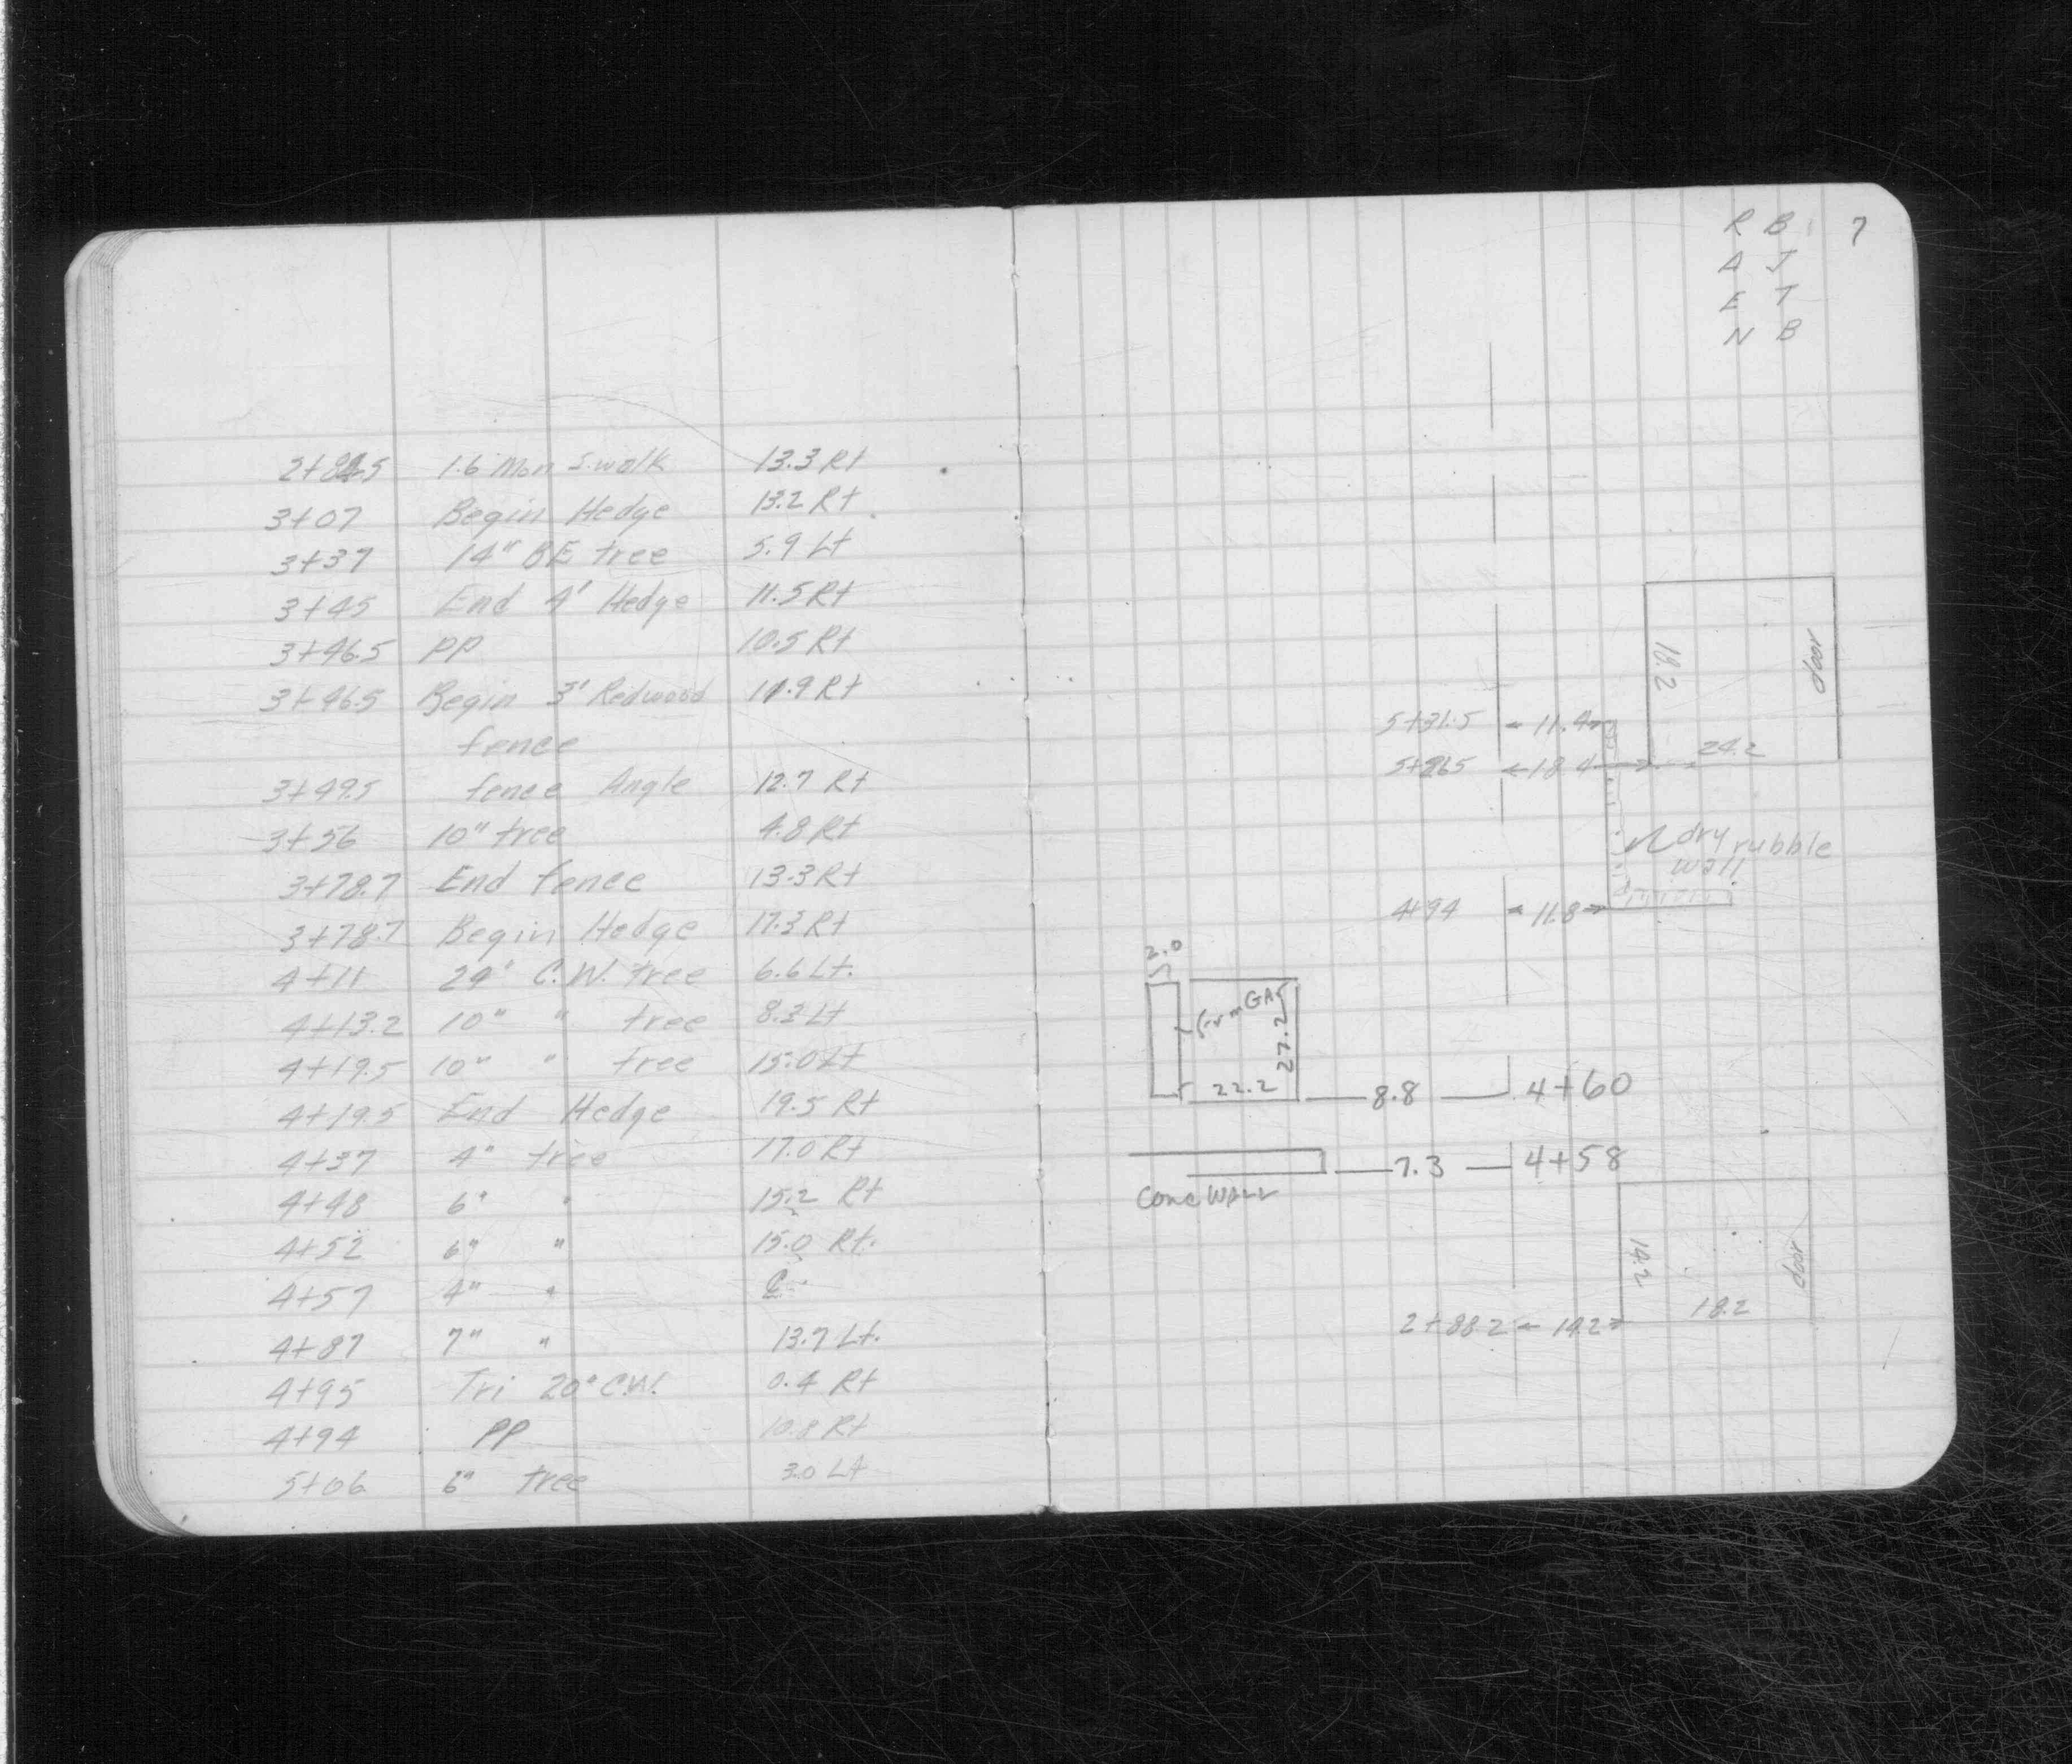 2+84.5 1.6 Mon S.walk 13.3 Rt
3+07 Begin Hedge 13.2 Rt
3+37 14" BE tree 5.9 Lt
3+45 End 4' Hedge 11.5 Rt
3+46.5 PP 10.5 Rt
3+46.5 Begin 3' Redwood 11.9 Rt
fence
3+49.5 fence Angle 12.7 Rt
3+56 10" tree 4.8 Rt
3+78.7 End fence 13.3 Rt
3+78.7 Begin Hedge 17.3 Rt
4+11 24" C.W. tree 6.6 Lt.
4+13.2 10" " tree 8.3 Lt
4+19.5 10" " tree 15.0 Lt
4+19.5 End Hedge 19.5 Rt
4+37 4" tree 17.0 Rt
4+48 6" " 15.2 Rt
4+52 6" " 15.0 Rt.
4+57 4" " ℄
4+87 7" " 13.7 Lt.
4+95 Tri 20" C.W. 0.4 Rt
4+94 PP 10.8 Rt
5+06 6" tree 3.0 Lt
R B 7
A J
E T
N B
door
18.2
5+31.5 11.4
5+26.5 18.4 24.2
dry rubble
wall
4+94 11.8
2.0
GAR
27.2
22.2 8.8 4+60
7.3 4+58
Conc WALL
14.2
door
18.2
2+88.2 14.2